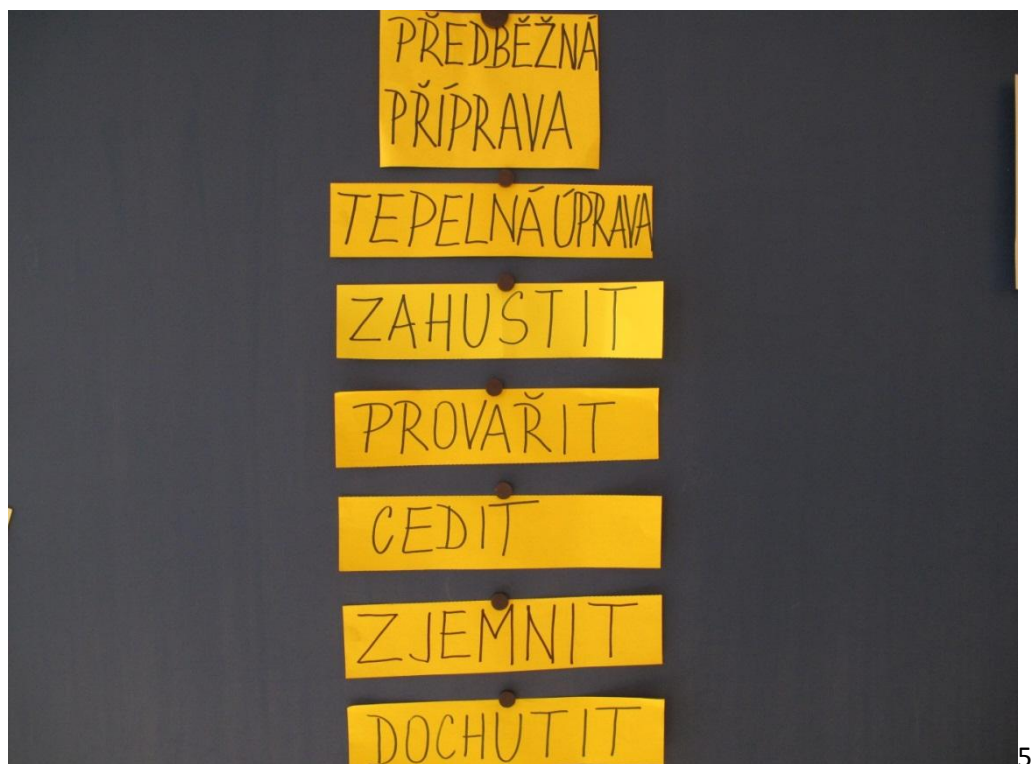 PŘEDBĚŽNÁ
PŘÍPRAVA
TEPELNÁ ÚPRAVA
ZAHUSTIT
PROVAŘIT
CEDIT
ZJEMNIT
DOCHUTIT
5